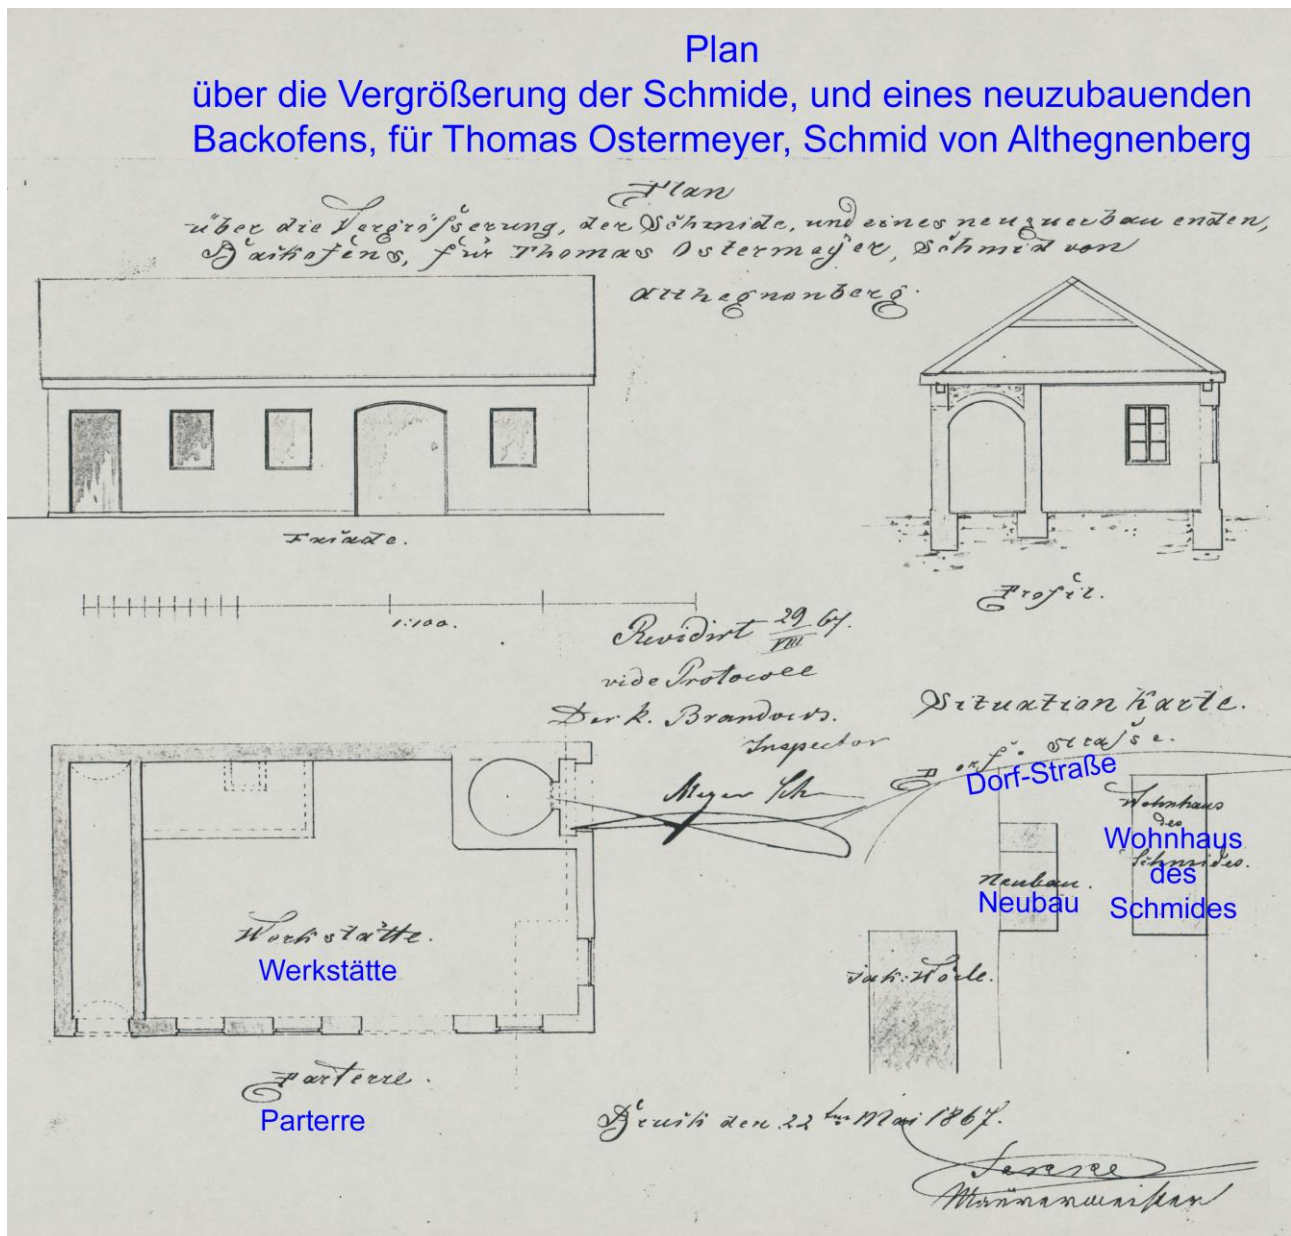 Plan
über die Vergrößerung der Schmide, und eines neuzubauenden
Backofens, für Thomas Ostermeyer, Schmid von Althegnenberg
Plan
über die Vergrößserung, der Schmide, und eines neuzuerbauenden,
Backofens, für Thomas Ostermeÿer, Schmid von
Althegnenberg.
Faciade.
Profil.
1:100.
Revidirt 29/VIII 67.
vide Protocoll
Der k. Brandvers.
Inspector
Situation Karte.
Dorf. Strasse.
Dorf-Straße
Wohnhaus
des
Schmides.
Wohnhaus
des
Schmides
Neubau.
Neubau
Jak: Wörle.
Werkstätte.
Werkstätte
Parterre.
Parterre
Bruck den 22ten Mai 1867.
Maurermeister